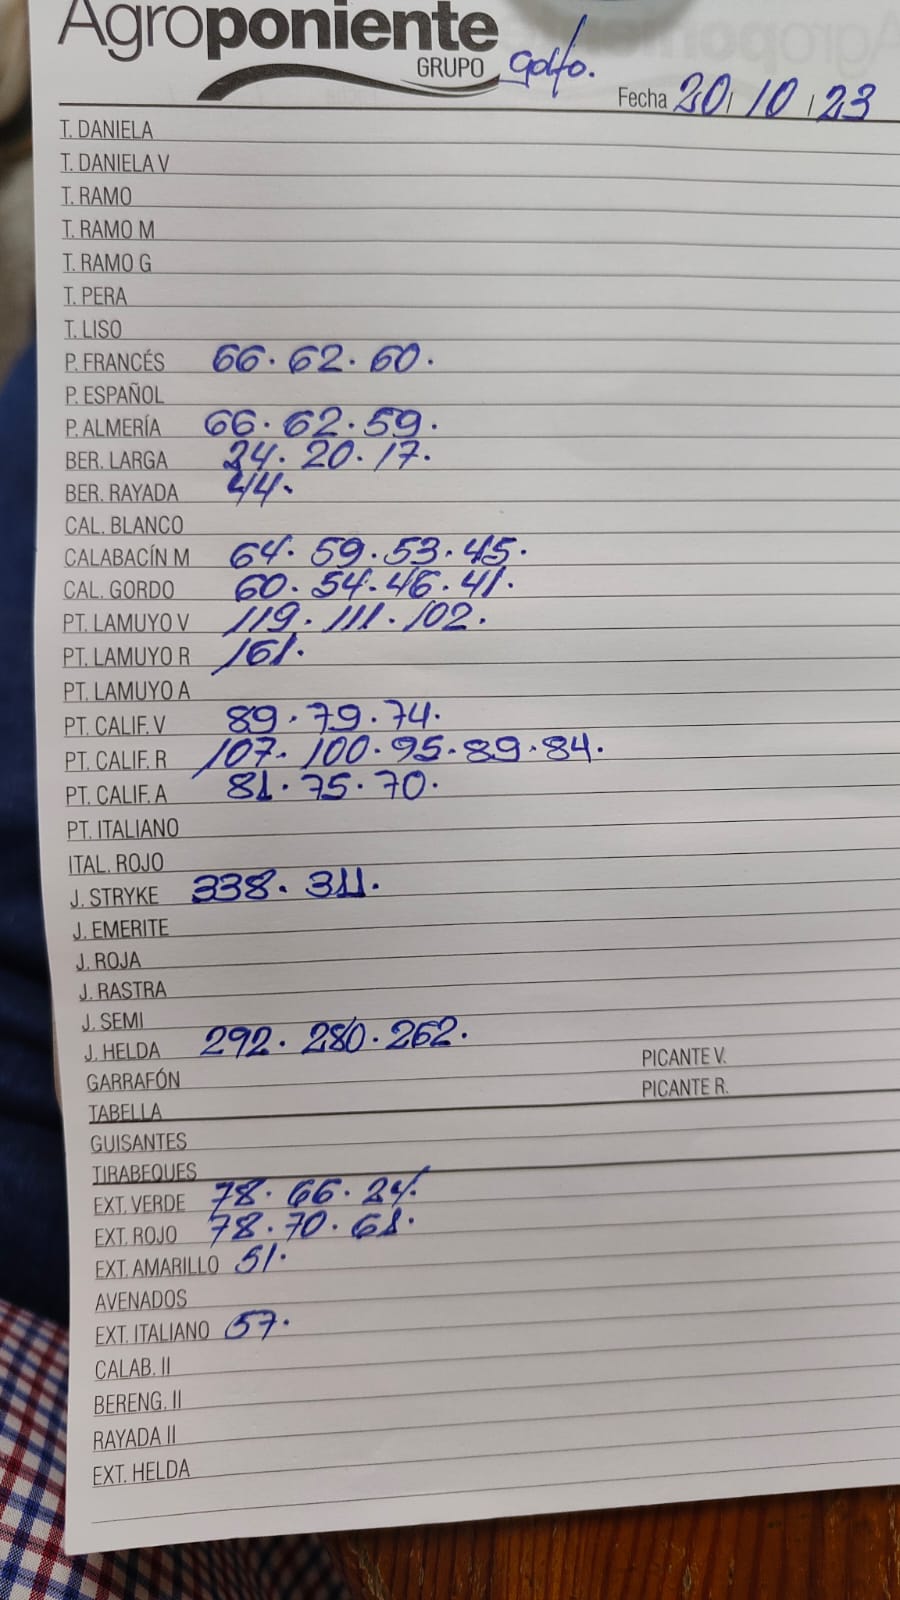 Agroponiente
GRUPO Golfo.
Fecha 20/10/23
T. DANIELA
T. DANIELA V
T. RAMO
T. RAMO M
T. RAMO G
T. PERA
T. LISO
P. FRANCÉS 66. 62. 60.
P. ESPAÑOL
P. ALMERÍA 66. 62. 59.
BER. LARGA 24. 20. 17.
BER. RAYADA 44.
CAL. BLANCO
CALABACÍN M 64. 59. 53. 45.
CAL. GORDO 60. 54. 46. 41.
PT. LAMUYO V 119. 111. 102.
PT. LAMUYO R 161.
PT. LAMUYO A
PT. CALIF. V 89. 79. 74.
PT. CALIF. R 107. 100. 95. 89. 84.
PT. CALIF. A 81. 75. 70.
PT. ITALIANO
ITAL. ROJO
J. STRYKE 338. 311.
J. EMERITE
J. ROJA
J. RASTRA
J. SEMI
J. HELDA 292. 280. 262.
GARRAFÓN PICANTE V.
TABELLA PICANTE R.
GUISANTES
TIRABEQUES
EXT. VERDE 78. 66.
EXT. ROJO 78. 70. 61.
EXT. AMARILLO 51.
AVENADOS
EXT. ITALIANO 57.
CALAB. II
BERENG. II
RAYADA II
EXT. HELDA